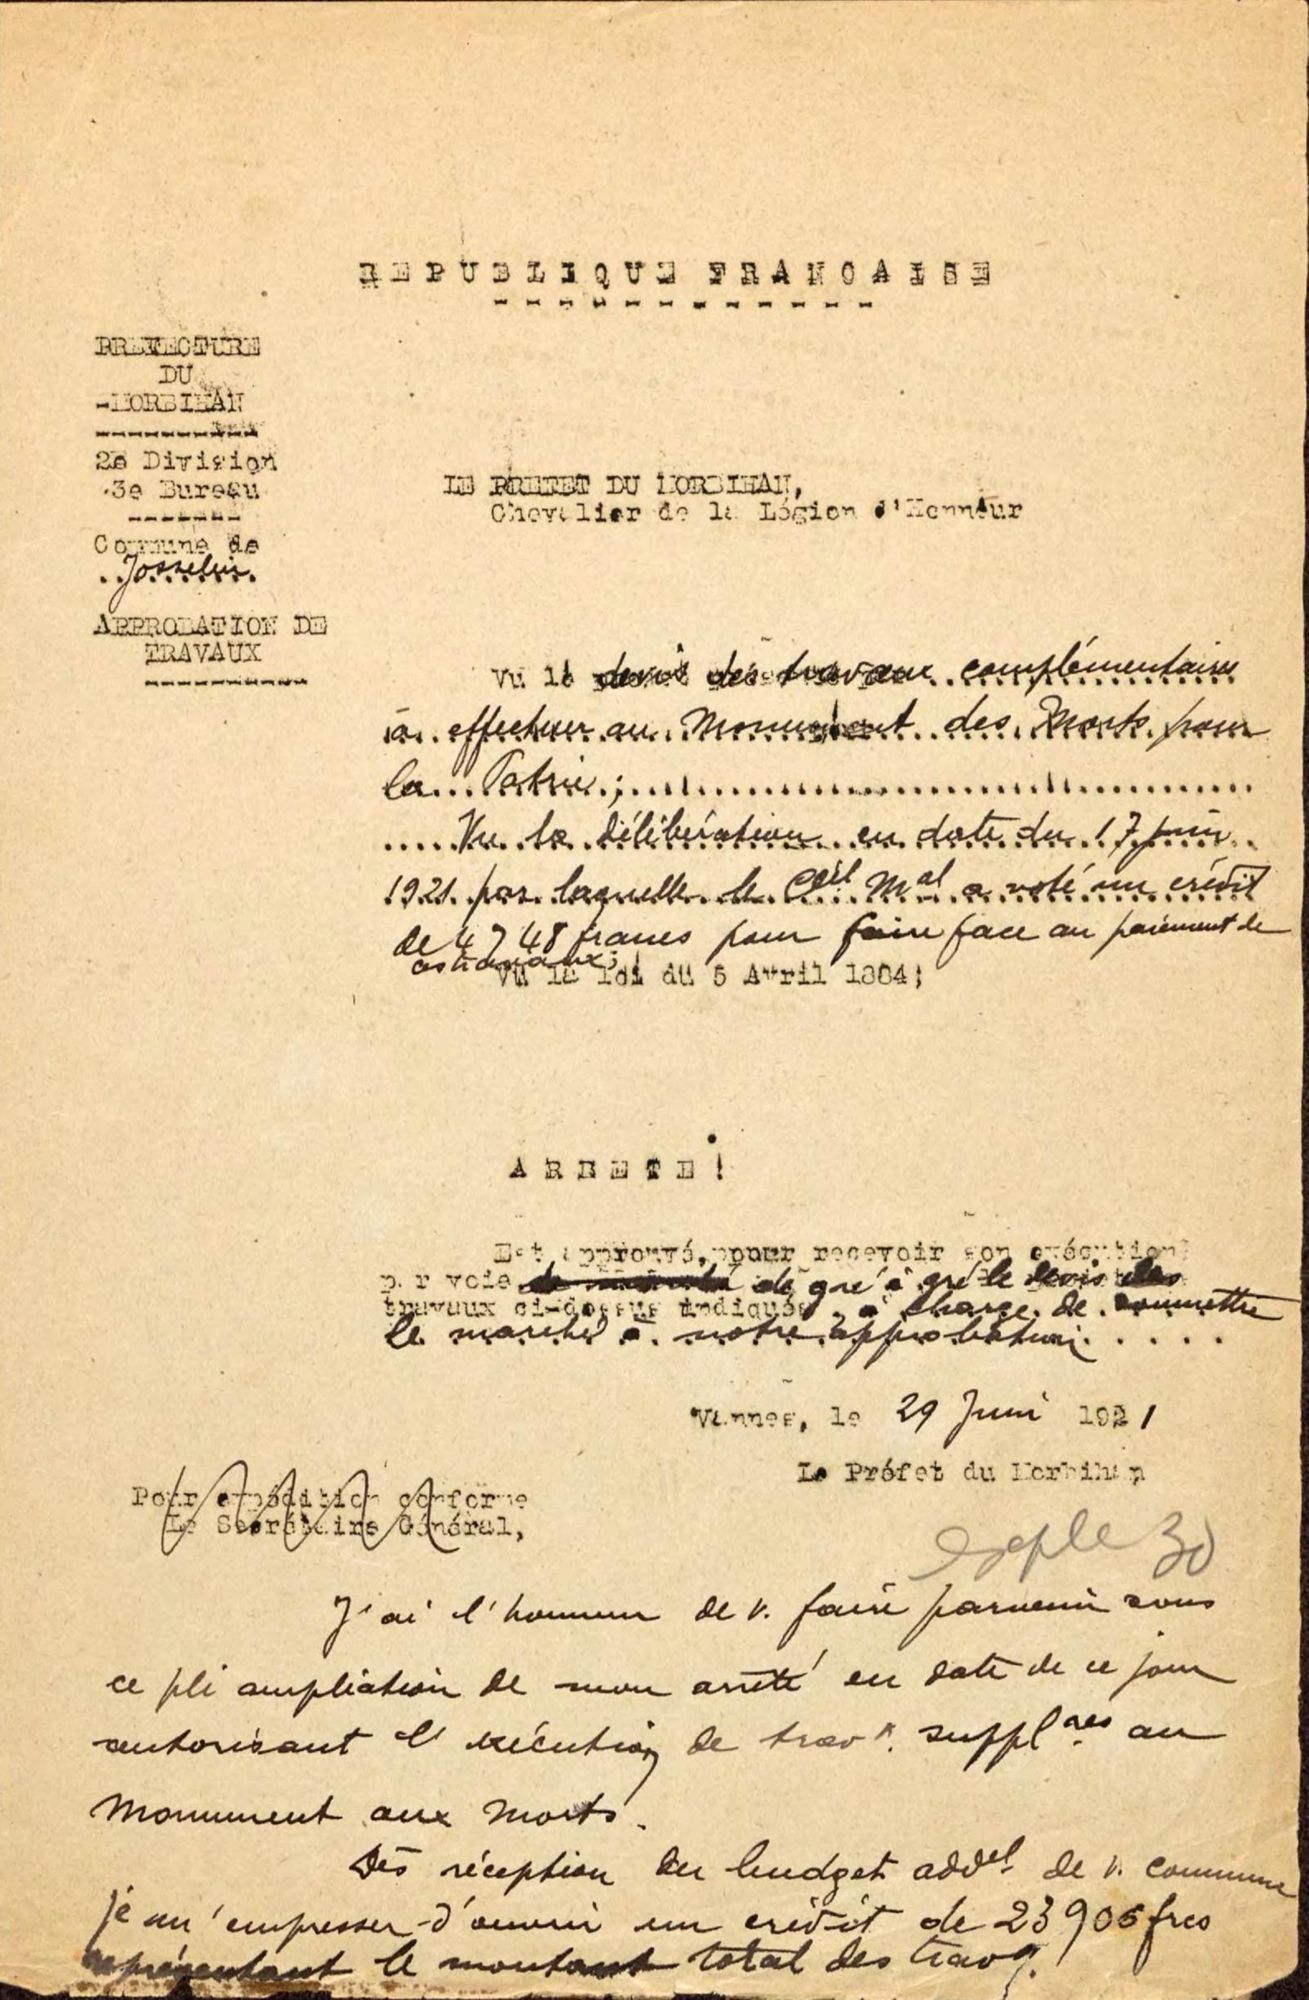 REPUBLIQUE FRANCAISE
PREFECTURE
DU
MORBIHAN
2e Division
3e Bureau
Commune de
Josselin
APPROBATION DE
TRAVAUX
LE PREFET DU MORBIHAN,
Chevalier de la Légion d'Honneur
Vu le devis des travaux complémentaires
à effectuer au Monument des Morts pour
la Patrie;
Vu la délibération en date du 17 juin
1921 par laquelle le Ceil Mal a voté un crédit
de 4748 francs pour faire face au paiement de
ces travaux;
Vu la loi du 5 Avril 1884;
ARRETE:
Est approuvé, pour recevoir son exécution
par voie de gré à gré le devis des
travaux ci-dessus indiqués, à charge de soumettre
le marché à notre approbation.
Vannes, le 29 Juin 1921
Le Préfet du Morbihan
Pour expédition conforme
Le Secrétaire Général,
30
J'ai l'honneur de v. faire parvenir sous
ce pli ampliation de mon arrêté en date de ce jour
autorisant l'exécution de travx. supplres au
Monument aux Morts.
Dès réception du budget addel de v. commune
je m'empresser d'ouvrir un crédit de 23906 frcs
représentant le montant total des travx.